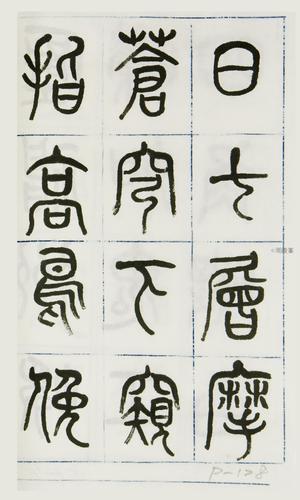 日七層摩
蒼穹下窺
指高鳥俛
P-128